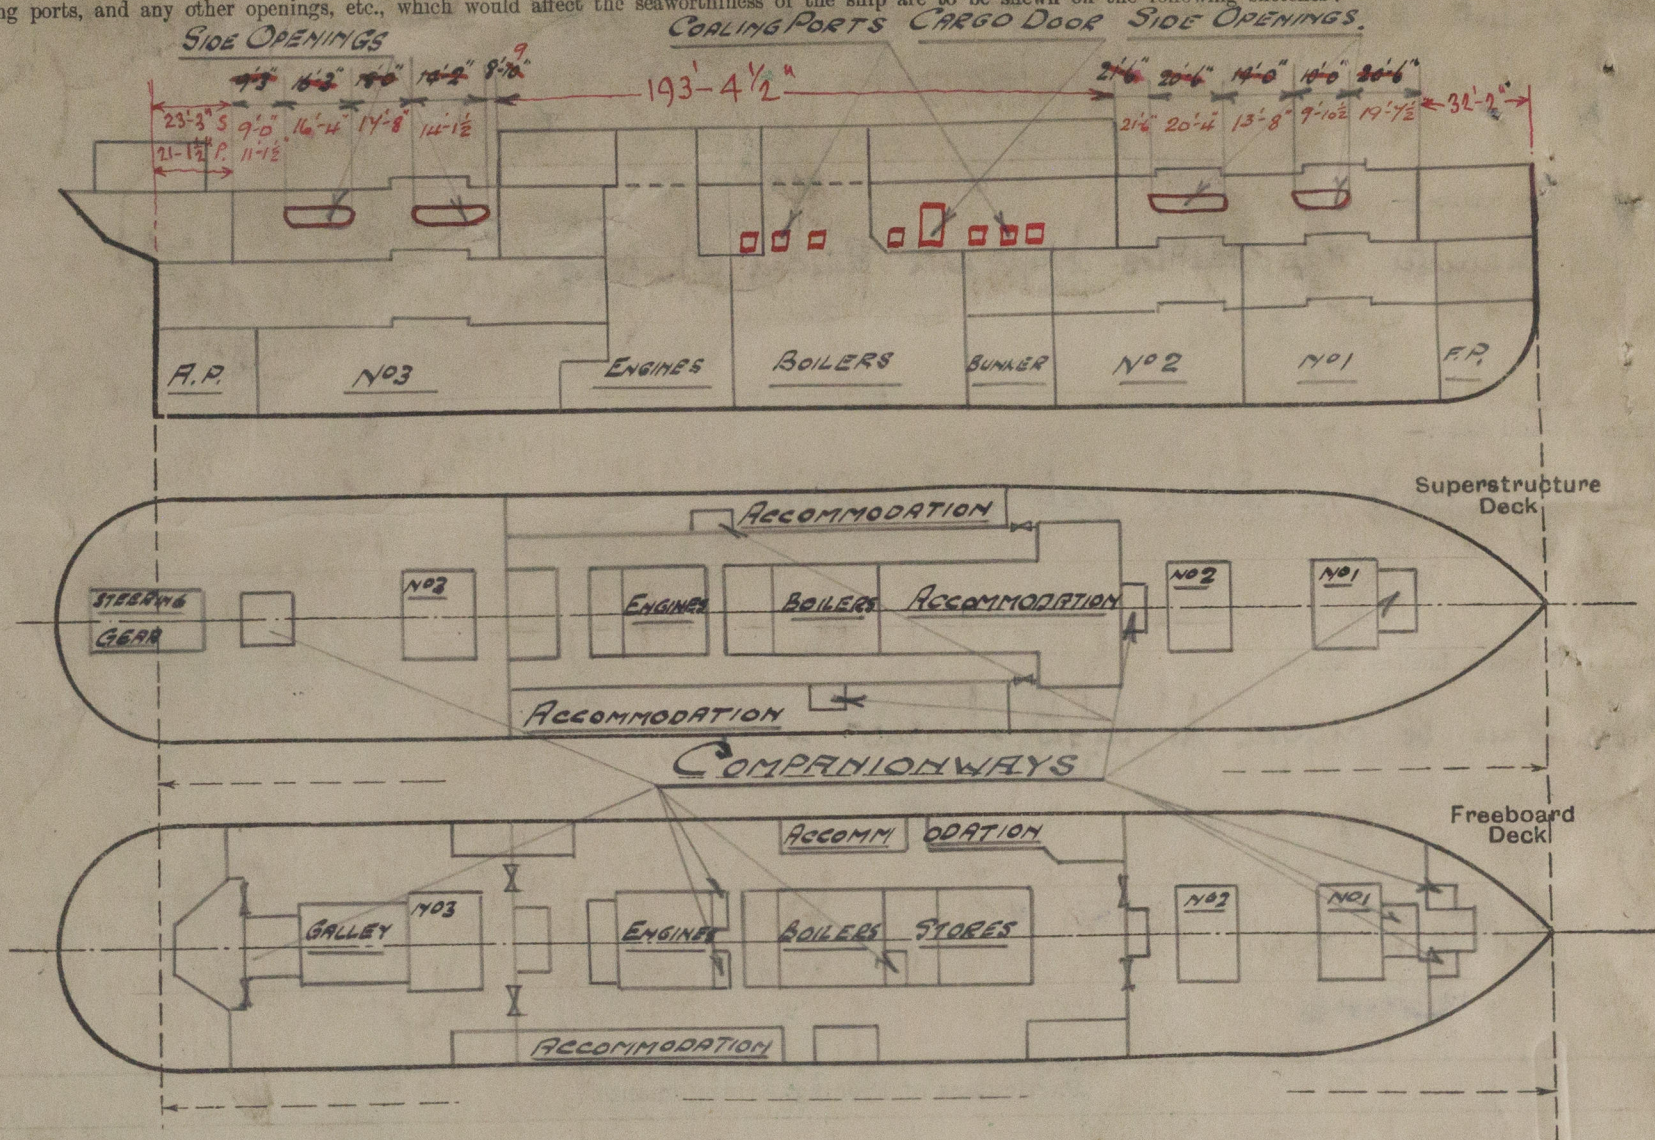 ng ports, and any other openings, etc., which would affect the seaworthiness of the ship are to be shewn on the following
SIDE OPENINGS COALING PORTS CARGO DOOR SIDE OPENINGS.
9'-3" 16'-3" 18'-0" 14'-2" 8'-10" 9 193'-4½" 21'-6" 20'-6" 14'-0" 10'-0" 20'-6" 32'-2"
23'-3" S 9'-0" 16'-4" 17'-8" 14'-1½ 21'-6" 20'-4" 13'-8" 9'-10½ 19'-7½"
21-1½" P. 11'-1½"
A.P. No3 ENGINES BOILERS BUNKER No2 No1 F.P.
Superstructure
Deck
ACCOMMODATION
STEERING
GEAR
No3 ENGINES BOILERS ACCOMMODATION No2 No1
ACCOMMODATION
COMPANIONWAYS
Freeboard
Deck
ACCOMMODATION
GALLEY No3 ENGINES BOILERS STORES No2 No1
ACCOMMODATION